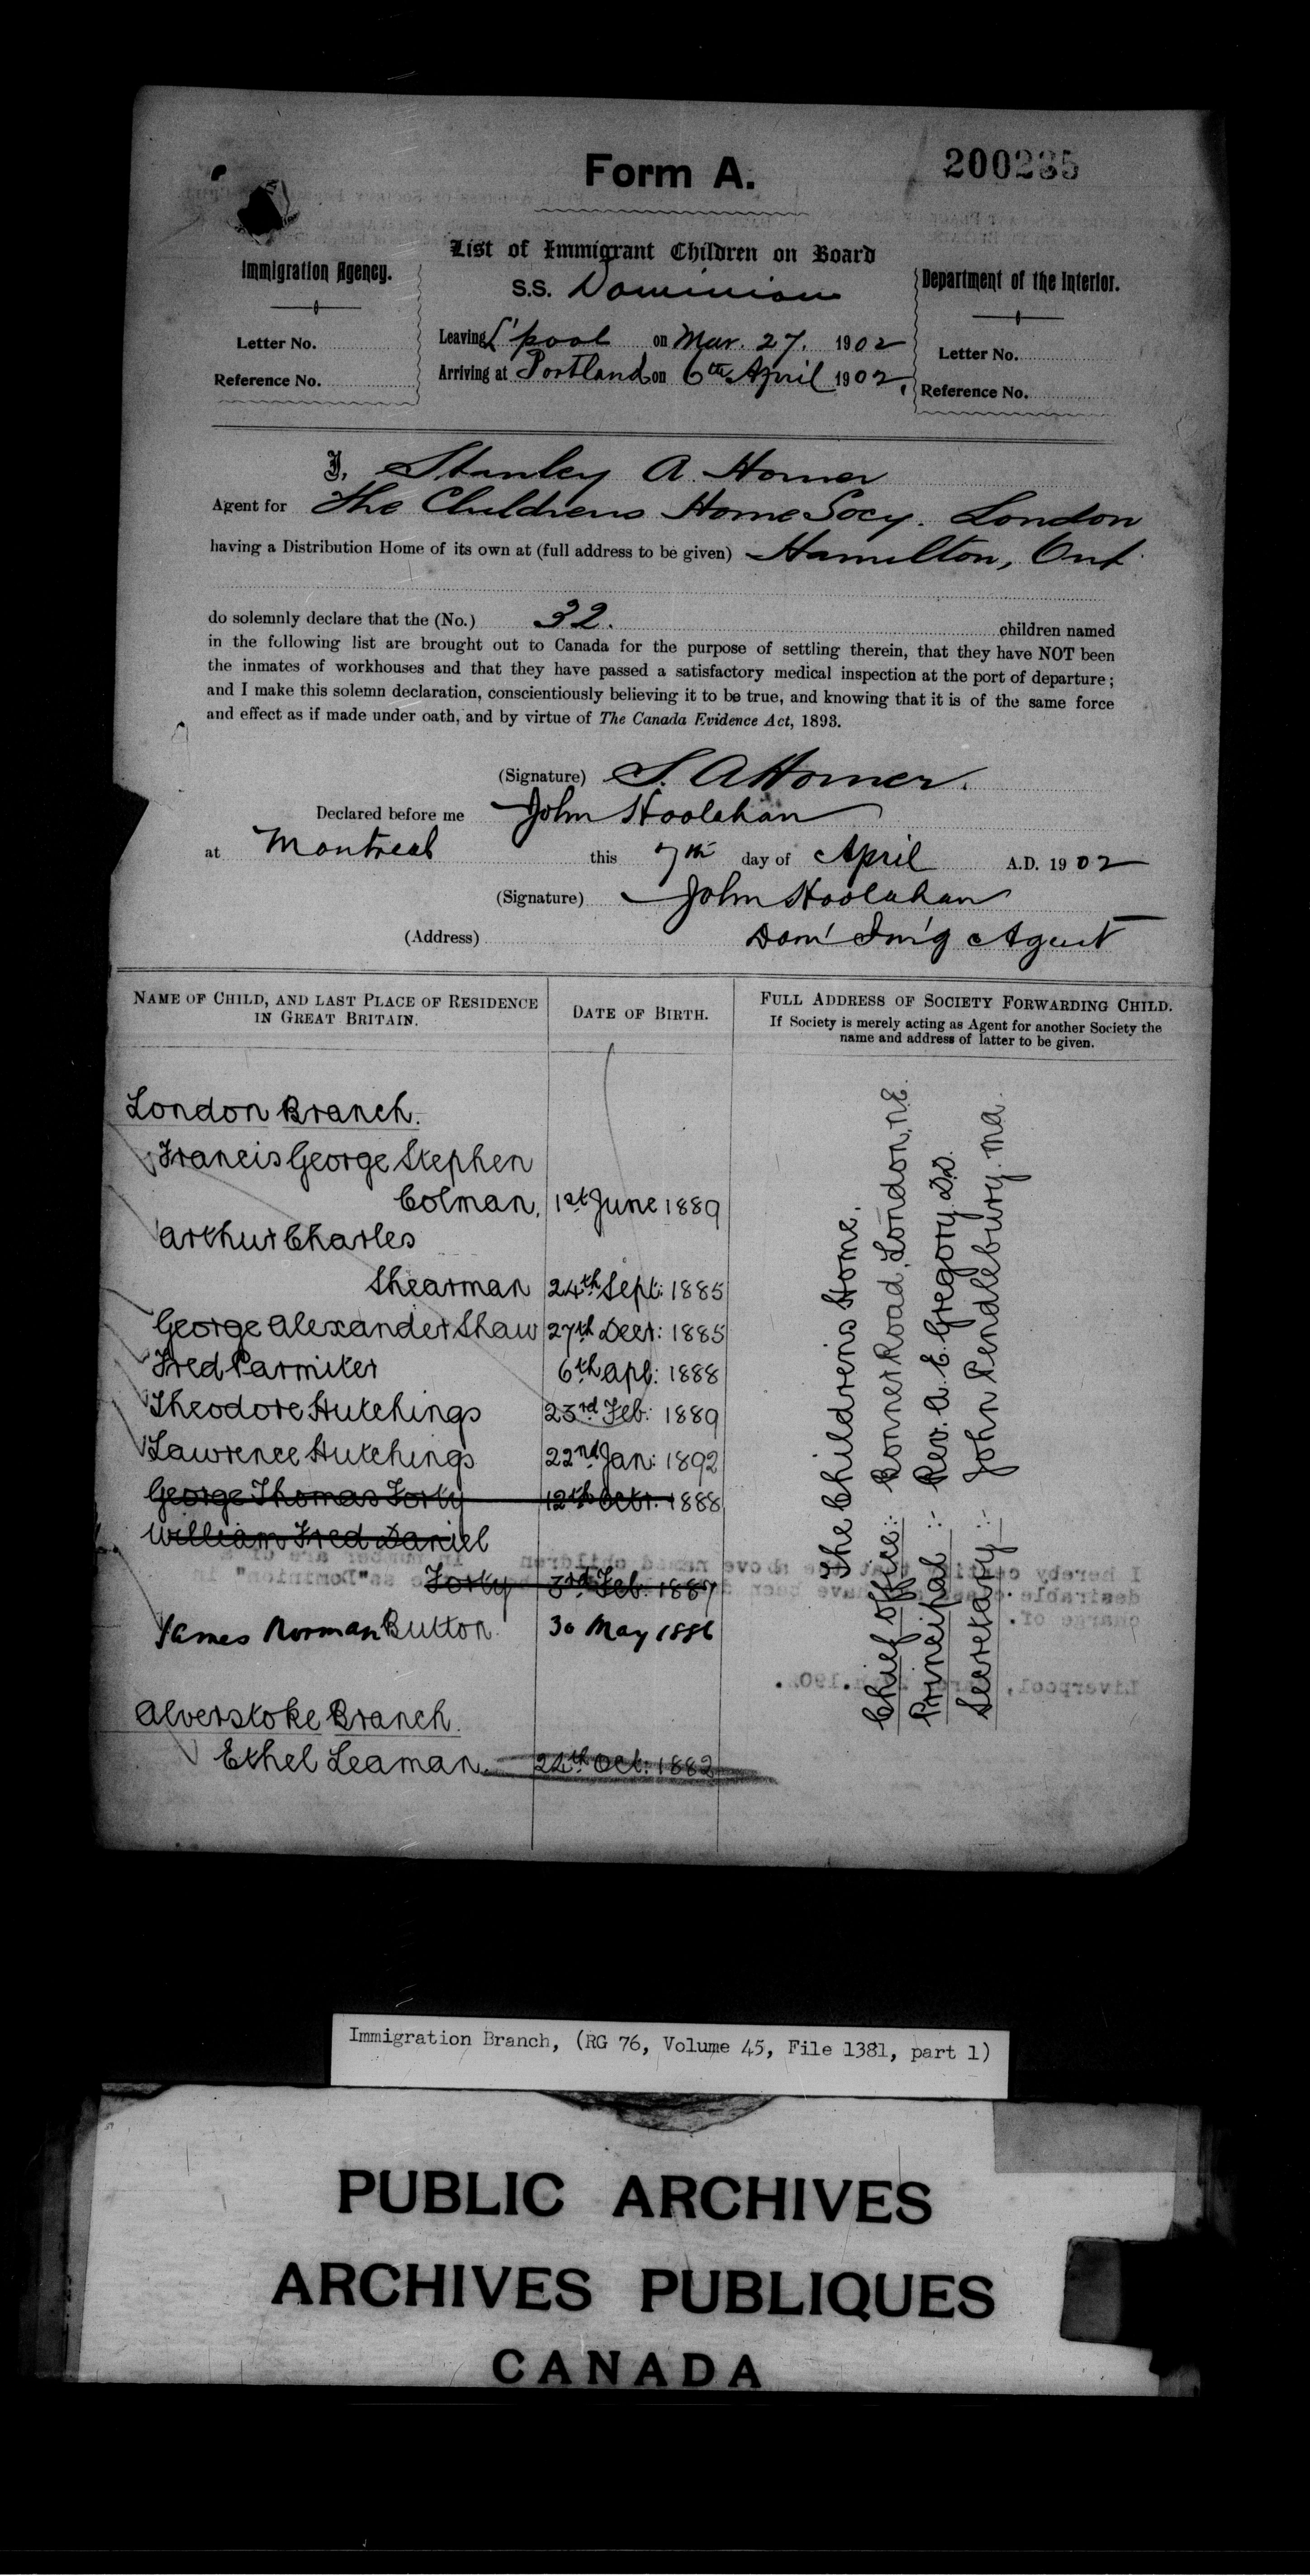 Form A.
200235
List of Immigrant Children on Board
Immigration Agency.
S.S. Dominion
Department of the Interior.
Letter No.
Leaving L'pool on Mar. 27. 1902
Letter No.
Reference No.
Arriving at Portland on 6th April 1902,
Reference No.
I, Stanley A. Homer
Agent for The Childrens Home Socy. London
having a Distribution Home of its own at (full address to be given) Hamilton, Ont
do solemnly declare that the (No.) 32. children named
in the following list are brought out to Canada for the purpose of settling therein, that they have NOT been
the inmates of workhouses and that they have passed a satisfactory medical inspection at the port of departure;
and I make this solemn declaration, conscientiously believing it to be true, and knowing that it is of the same force
and effect as if made under oath, and by virtue of The Canada Evidence Act, 1893.
(Signature) S. A Homer.
Declared before me John Hoolahan
at Montreal this 7th day of April A.D. 1902
(Signature) John Hoolahan
(Address) Dom' Im'g Agent
NAME OF CHILD, AND LAST PLACE OF RESIDENCE IN GREAT BRITAIN.
DATE OF BIRTH.
FULL ADDRESS OF SOCIETY FORWARDING CHILD.
If Society is merely acting as Agent for another Society the
name and address of latter to be given.
London Branch.
Francis George Stephen
Colman, 1st June 1889
Arthur Charles
Shearman 24th Sept: 1885
George Alexander Shaw 27th Decr: 1885
Fred Parmiter 6th Apl: 1888
Theodore Hutchings 23rd Feb: 1889
Lawrence Hutchings 22nd Jan: 1892
George Thomas Forty 12th Octr: 1888
William Fred Daniel
Forty 3rd Feb. 1887
James Norman Button 30 May 1886
Alverstoke Branch.
Ethel Leaman. 24th Oct: 1882
The Childrens Home.
Chief Office:- Bonner Road, London, N.E.
Principal :- Rev. A. E. Gregory D.D.
Secretary :- John Pendlebury. M.A.
Immigration Branch, (RG 76, Volume 45, File 1381, part 1)
PUBLIC ARCHIVES
ARCHIVES PUBLIQUES
CANADA